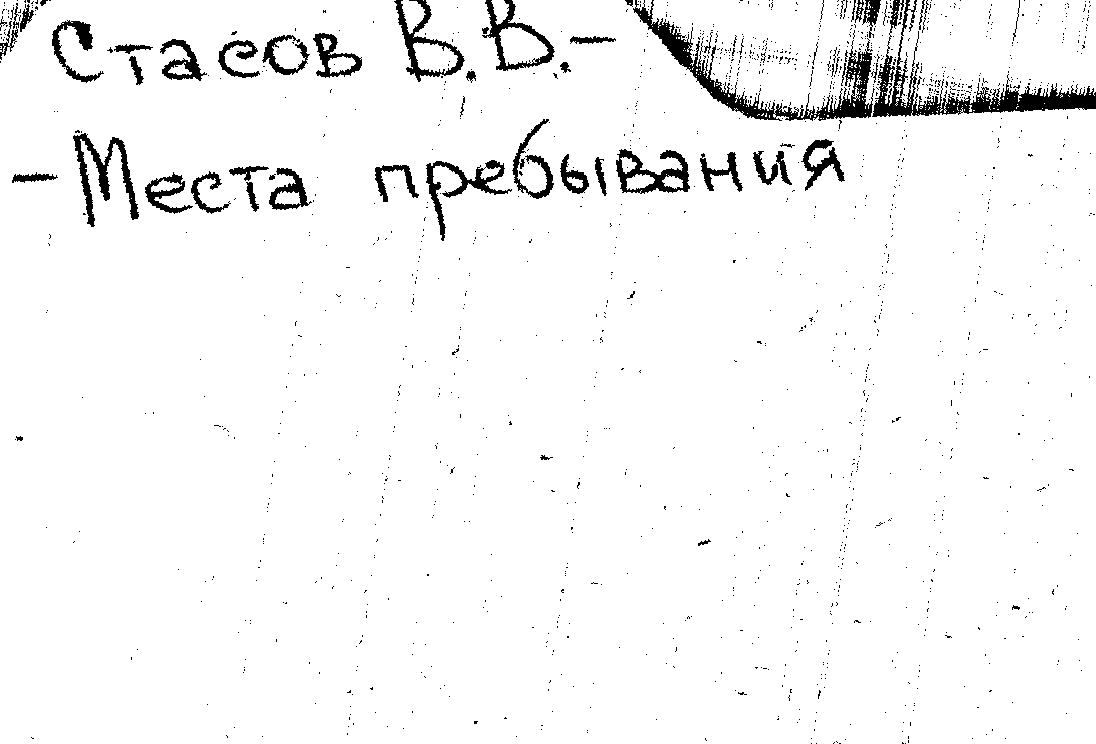 Стасов В.В.–
– Места пребывания